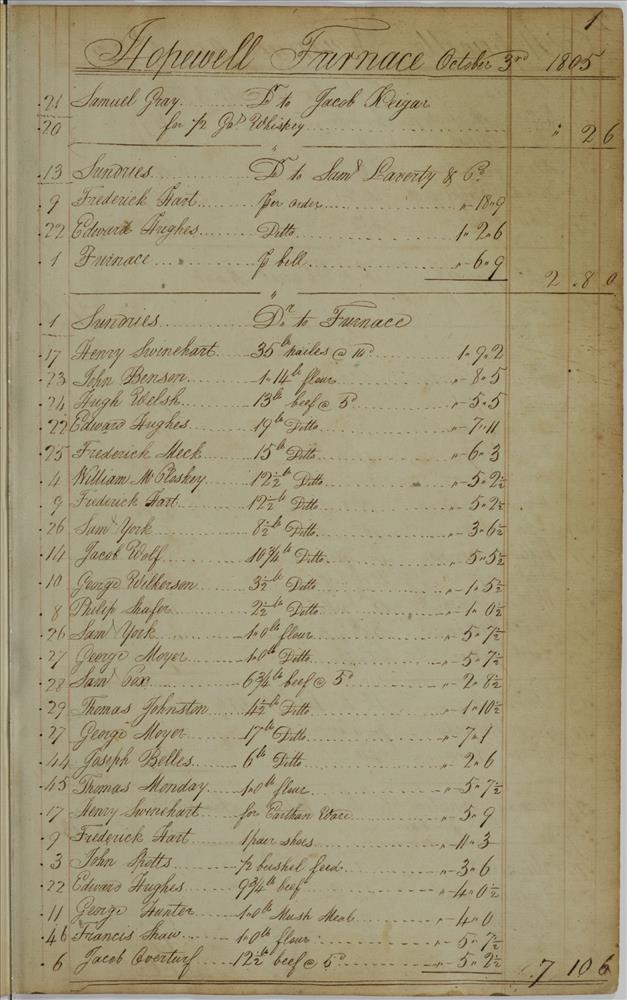 1
Hopewell Furnace October 3rd 1805
21 Samuel Gray Dr to Jacob Keigar
20 for 1/2 Gal Whiskey " 2 6
13 Sundries Dr to Saml Laverty & Co
9 Frederick Hart per order " 18 " 9
22 Edward Hughes Ditto 1 " 2 " 6
1 Furnace p bill " 6 " 9
2 . 8 . 0
1 Sundries Dr to Furnace
17 Henry Swinehart 35 lb nailes @ 10d 1 " 9 " 2
23 John Benson 1 " 14 lb flour " 8 " 5
24 Hugh Welsh 13 lb beef @ 5d " 5 " 5
22 Edward Hughes 19 lb Ditto " 7 " 11
25 Frederick Meck 15 lb Ditto " 6 " 3
4 William McCloskey 12 1/2 lb Ditto " 5 " 2 1/2
9 Frederick Hart 12 1/2 lb Ditto " 5 " 2 1/2
26 Saml York 8 1/2 lb Ditto " 3 " 6 1/2
14 Jacob Wolf 10 3/4 lb Ditto " 5 " 5 1/2
10 George Wilkerson 3 1/2 lb Ditto " 1 " 5 1/2
8 Philip Shafer 2 1/2 lb Ditto " 1 " 0 1/2
26 Saml York 1 " 0 lb flour " 5 " 7 1/2
27 George Moyer 1 " 0 lb Ditto " 5 " 7 1/2
28 Saml Cox 6 3/4 lb beef @ 5d " 2 " 8 1/2
29 Thomas Johnston 4 1/2 lb Ditto " 1 " 10 1/2
27 George Moyer 17 lb Ditto " 7 " 1
44 Joseph Belles 6 lb Ditto " 2 " 6
45 Thomas Monday 1 " 0 lb flour " 5 " 7 1/2
17 Henry Swinehart for Earthan Ware " 5 " 9
9 Frederick Hart 1 pair shoes " 11 " 3
3 John Spotts 1/2 bushel feed " 3 " 6
22 Edward Hughes 9 3/4 lb beef " 4 " 0 1/2
11 George Hunter 1 " 0 lb Mush Meal " 4 " 0
46 Francis Shaw 1 " 0 lb flour " 5 " 7 1/2
6 Jacob Overturf 12 1/2 lb beef @ 5d " 5 " 2 1/2 7 10 6